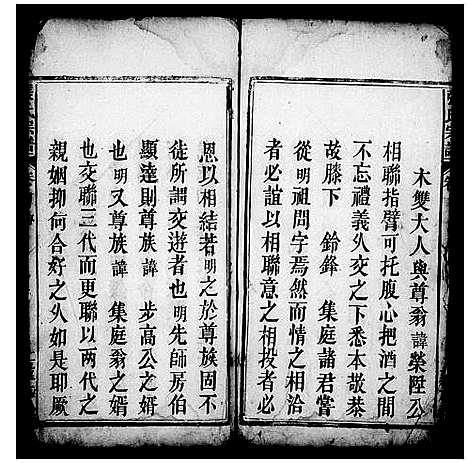 木雙大人與尊翁 諱榮陞公
相聯指臂可托腹心把酒之間
不忘禮義久交之下悉本敬恭
故滕下 鈴鋒 集庭諸君嘗
從明祖問字焉然而情之相洽
者必誼以相聯意之相投者必
恩以相結若明之於尊族固不
徒所謂交遊者也明先師房伯
顯達則尊族 諱 步高公之婿
也明又尊族 諱 集庭翁之婿
也交聯三代而更聯以兩代之
親姻抑何合好之久如是耶厥